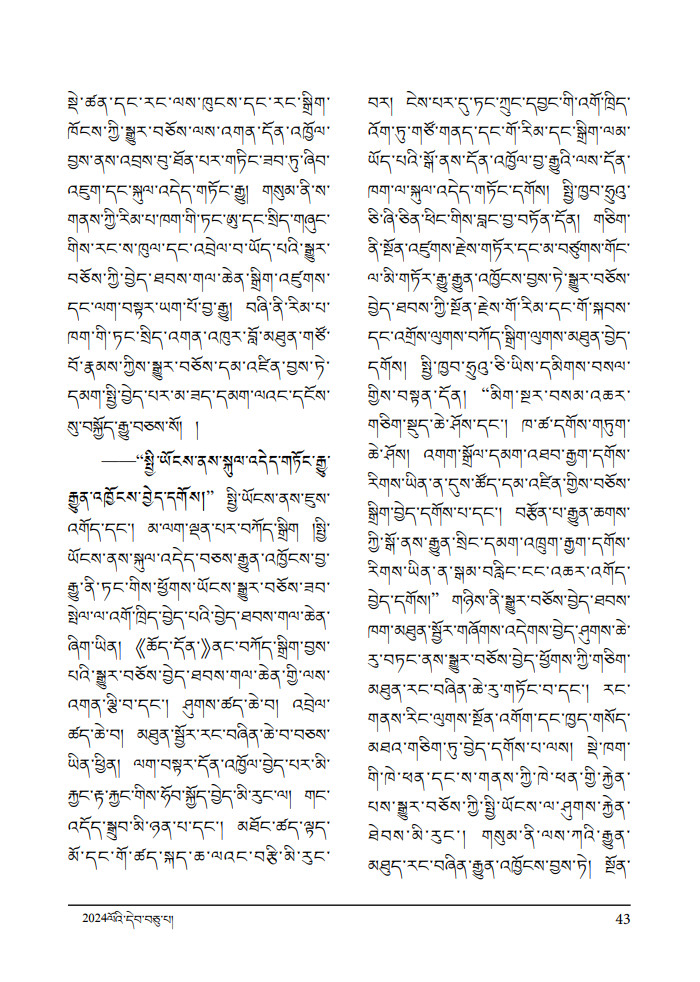 སྡེ་ཚན་དང་རང་ལས་ཁུངས་དང་རང་སྒྲིག་
ཁོངས་ཀྱི་སྒྱུར་བཅོས་ལས་འགན་དོན་འཁྱོལ་
བྱས་ནས་འབྲས་བུ་ཐོན་པར་གཏིང་ཟབ་ཏུ་ཞིབ་
འཇུག་དང་སྐུལ་འདེད་གཏོང་རྒྱུ། གསུམ་ནི་ས་
གནས་ཀྱི་རིམ་པ་ཁག་གི་ཏང་ཨུ་དང་སྲིད་གཞུང་
གིས་རང་ས་ཁུལ་དང་འབྲེལ་བ་ཡོད་པའི་སྒྱུར་
བཅོས་ཀྱི་བྱེད་ཐབས་གལ་ཆེན་སྒྲིག་འཛུགས་
དང་ལག་བསྟར་ཡག་པོ་བྱ་རྒྱུ། བཞི་ནི་རིམ་པ་
ཁག་གི་ཏང་སྲིད་འགན་འཁུར་བློ་མཐུན་གཙོ་
བོ་རྣམས་ཀྱིས་སྒྱུར་བཅོས་དམ་འཛིན་བྱས་ཏེ་
དམག་སྤྱི་བྱེད་པར་མ་ཟད་དམག་ལའང་དངོས་
སུ་བསྐྱོད་རྒྱུ་བཅས་སོ། །
——“སྤྱི་ཡོངས་ནས་སྐུལ་འདེད་གཏོང་རྒྱུ་
རྒྱུན་འཁྱོངས་བྱེད་དགོས།” སྤྱི་ཡོངས་ནས་ཇུས་
འགོད་དང་། མ་ལག་ལྡན་པར་བཀོད་སྒྲིག །སྤྱི་
ཡོངས་ནས་སྐུལ་འདེད་བཅས་རྒྱུན་འཁྱོངས་བྱ་
རྒྱུ་ནི་ཏང་གིས་ཕྱོགས་ཡོངས་སྒྱུར་བཅོས་ཟབ་
སྤེལ་ལ་འགོ་ཁྲིད་བྱེད་པའི་བྱེད་ཐབས་གལ་ཆེན་
ཞིག་ཡིན། 《ཆོད་དོན་》ནང་བཀོད་སྒྲིག་བྱས་
པའི་སྒྱུར་བཅོས་བྱེད་ཐབས་གལ་ཆེན་གྱི་ལས་
འགན་ལྕི་བ་དང་། ཤུགས་ཚད་ཆེ་བ། འབྲེལ་
ཚད་ཆེ་བ། མཐུན་སྦྱོར་རང་བཞིན་ཆེ་བ་བཅས་
ཡིན་ཕྱིན། ལག་བསྟར་དོན་འཁྱོལ་བྱེད་པར་མི་
རྐྱང་རྟ་རྐྱང་གིས་ཧོབ་སྐྱོད་བྱེད་མི་རུང་ལ། གང་
འདོད་སྒྲུབ་མི་ཉན་པ་དང་། མཐོང་ཚད་ལྟད་
མོ་དང་གོ་ཚད་སྐད་ཆ་ལའང་བརྩི་མི་རུང་
བར། ངེས་པར་དུ་ཏང་ཀྲུང་དབྱང་གི་འགོ་ཁྲིད་
འོག་ཏུ་གཙོ་གནད་དང་གོ་རིམ་དང་སྒྲིག་ལམ་
ཡོད་པའི་སྒོ་ནས་དོན་འཁྱོལ་བྱ་རྒྱུའི་ལས་དོན་
ཁག་ལ་སྐུལ་འདེད་གཏོང་དགོས། སྤྱི་ཁྱབ་ཧྲུའུ་
ཅི་ཞི་ཅིན་ཕིང་གིས་བླང་བྱ་བཏོན་དོན། གཅིག་
ནི་སྔོན་འཛུགས་རྗེས་གཏོར་དང་མ་བཙུགས་གོང་
ལ་མི་གཏོར་རྒྱུ་རྒྱུན་འཁྱོངས་བྱས་ཏེ་སྒྱུར་བཅོས་
བྱེད་ཐབས་ཀྱི་སྔོན་རྗེས་གོ་རིམ་དང་གོ་སྐབས་
དང་འགྲོས་ལུགས་བཀོད་སྒྲིག་ལུགས་མཐུན་བྱེད་
དགོས། སྤྱི་ཁྱབ་ཧྲུའུ་ཅི་ཡིས་དམིགས་བསལ་
གྱིས་བསྟན་དོན། “མིག་སྔར་བསམ་འཆར་
གཅིག་སྡུད་ཆེ་ཤོས་དང་། ཁ་ཚ་དགོས་གཏུག་
ཆེ་ཤོས། འགག་སྒྲོལ་དམག་འཐབ་རྒྱག་དགོས་
རིགས་ཡིན་ན་དུས་ཚོད་དམ་འཛིན་གྱིས་བཅོས་
སྒྲིག་བྱེད་དགོས་པ་དང་། བརྩོན་པ་རྒྱུན་ཆགས་
ཀྱི་སྒོ་ནས་རྒྱུན་སྲིང་དམག་འཁྲུག་རྒྱག་དགོས་
རིགས་ཡིན་ན་སྒམ་བརླིང་ངང་འཆར་འགོད་
བྱེད་དགོས།” གཉིས་ནི་སྒྱུར་བཅོས་བྱེད་ཐབས་
ཁག་མཐུན་སྦྱོར་གཞོགས་འདེགས་བྱེད་ཤུགས་ཆེ་
རུ་བཏང་ནས་སྒྱུར་བཅོས་བྱེད་ཕྱོགས་ཀྱི་གཅིག་
མཐུན་རང་བཞིན་ཆེ་རུ་གཏོང་བ་དང་། རང་
གནས་རིང་ལུགས་སྔོན་འགོག་དང་ཁྱད་གསོད་
མཐའ་གཅིག་ཏུ་བྱེད་དགོས་པ་ལས། སྡེ་ཁག་
གི་ཁེ་ཕན་དང་ས་གནས་ཀྱི་ཁེ་ཕན་གྱི་རྐྱེན་
པས་སྒྱུར་བཅོས་ཀྱི་སྤྱི་ཡོངས་ལ་ཤུགས་རྐྱེན་
ཐེབས་མི་རུང་། གསུམ་ནི་ལས་ཀའི་རྒྱུན་
མཐུད་རང་བཞིན་རྒྱུན་འཁྱོངས་བྱས་ཏེ། སྔོན་
2024ལོའི་དེབ་བཅུ་པ།
43